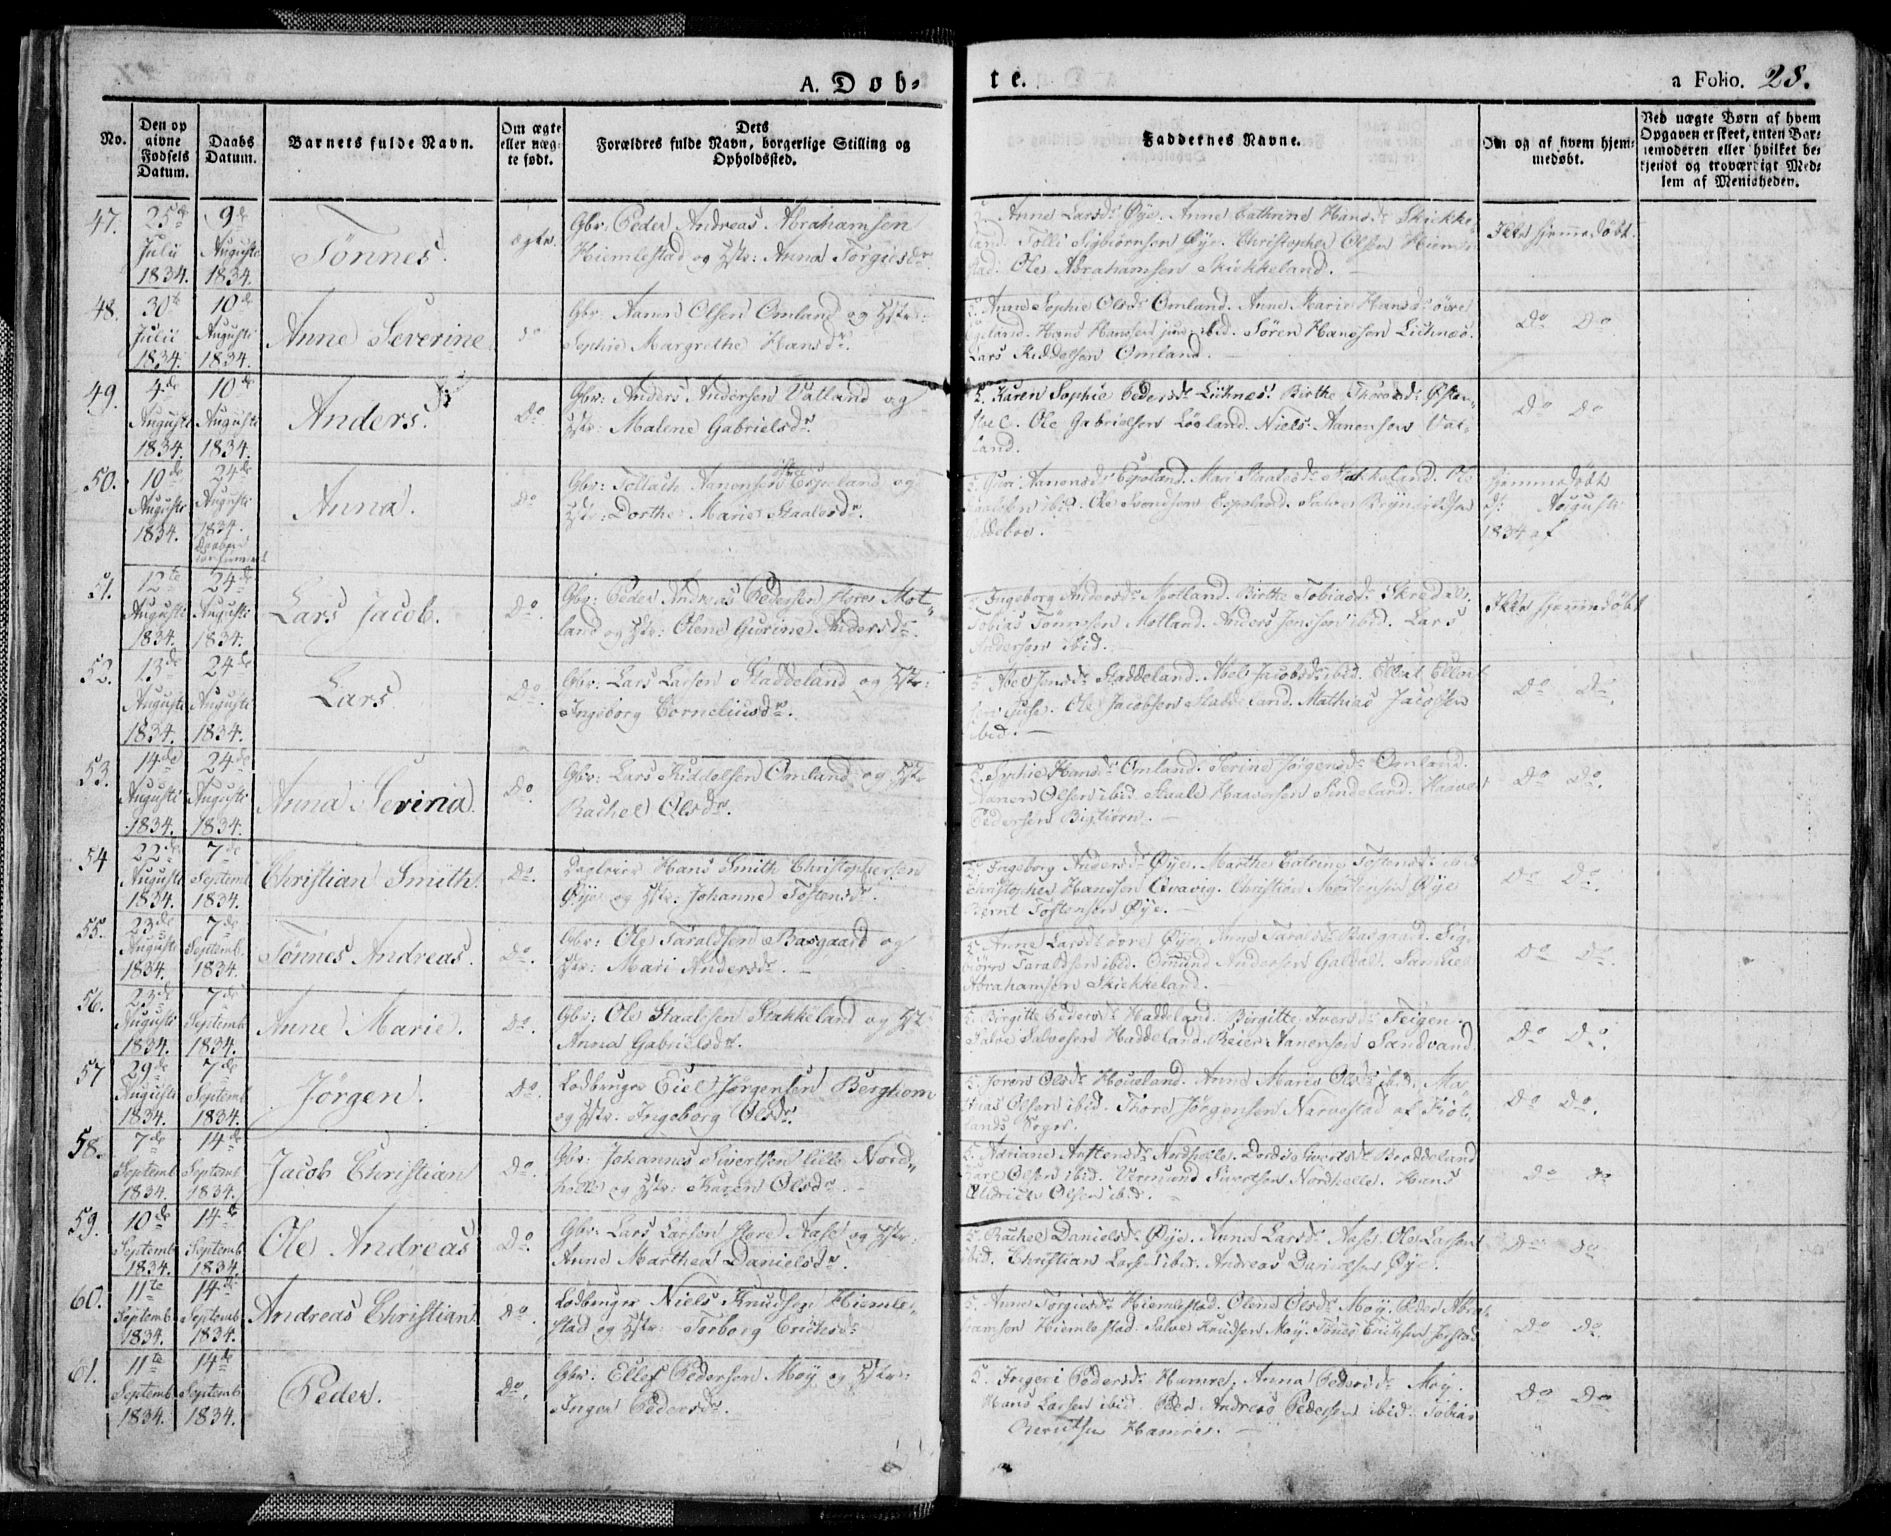 A. Døb-
te.
a Folio. 28.
No.
Den op
givne
Fødsels
Datum.
Daabs
Datum.
Barnets fulde Navn.
Om ægte
eller uæg-
te født.
Dets
Forældres fulde Navn, borgerlige Stilling og
Opholdssted.
Faddernes Navne.
Om og af hvem hjem-
medøbt.
Ved uægte Børn af hvem
Opgaven er skeet, enten Bar-
nemoderen eller hvilket be-
kjendt og troværdigt Med-
lem af Menigheden.
47.
25de
Julii
1834.
9de
Augusti
1834.
Tønnes.
ægte.
Gbr. Peder Andreas Abrahamsen
Hiemlestad og Hstr: Anna Torgiesdr.
Anne Larsdr Øye. Anne Cathrine Hansdr Skiekke-
land. Tolli Sigbiørnsen Øye. Christopher Olsen Hiemle-
stad. Ole Abrahamsen Skiekkeland.
Ikke hjemmedøbt.
48.
30te
Julii
1834.
10de
Augusti
1834.
Anne Severine
Do
Gbr. Aanen Olsen Omland og Hstr:
Sophie Margrethe Hansdr.
5. Anne Sophie Olsdr Omland. Anne Marie Hansdr øvre
Egeland. Hans Hanssen ibid. Søren Hanssen Lichnæs.
Lars Kiddelsen Omland.
Do Do
49.
4de
Augusti
1834.
10de
Augusti
1834.
Anders.
Do
Gbr: Anders Andersen Vatland og
Hstr: Malene Gabrielsdr.
5. Karen Sophie Pedersdr Lichnæs. Birthe
Ole Gabrielsen Løgland. Niels Aanensen Vat-
land.
Do Do
50.
10de
Augusti
1834.
24de
Augusti
1834.
Anna.
Do
Gbr: Tollach Aanensen Espeland og
Hstr: Dorthe Marie Staalesdr.
5. Guri Aanensdr Espeland. Mari Staalesdr Stakkeland. Ole
Staalesen ibid. Ole Svendsen Espeland.
hjemmedøbt
d: Augusti
1834 af
51.
12te
Augusti
1834.
24de
Augusti
1834.
Lars Jacob.
Do.
Gbr: Peder Andreas Pedersen store Mot-
land og Hstr: Olene Gurine Andersdr.
5. Ingeborg Andersdr Motland. Birthe Tobiasdr
Tobias Tønnesen Motland. Anders Jonssen ibid. Lars
Andersen ibid.
Ikke hjemmedøbt
52.
13de
Augusti
1834.
24de
Augusti
1834.
Lars
Do.
Gbr: Lars Larsen Staddeland og Hstr:
Ingeborg Corneliusdr.
5. Abel Jensdr Staddeland. Abel Jacobsdr ibid.
Ole Jacobsen Staddeland. Mathias Jacobsen
ibid.
Do Do.
53.
14de
Augusti
1834.
24de
Augusti
1834.
Anna Serina.
Do.
Gbr: Lars Kiddelsen Omland og Hstr
Rachel Olsdr.
5. Sophie Hansdr Omland. Serine Jørgensdr Omland.
Aanen Olsen ibid. Staale Haaversen Sindeland. Haaver
Pedersen Bistiorn.
Do Do.
54
22de
Augusti
1834.
7de
Septemb
1834.
Christian Smith.
Do.
Dagleier Hans Smith Christophersen
Øye og Hstr: Johanne Tostensdr.
5. Ingeborg Andersdr Øye. Marthe Catrine Tostensdr ibid
Christopher Hanssen Qvavig. Christian Mortensen Øye
Bernt Tostensen Øye.
Do Do.
55.
23de
Augusti
1834.
7de
Septemb.
1834.
Tønnes Andreas.
Do.
Gbr: Ole Taraldsen Basgaard og
Hstr: Mari Andersdr.
5 Anne Larsdr øvre Øye. Anne Taralsdr Basgaard. Sig-
biørn Taraldsen ibid. Omund Andersen Galdal. Samuel
Abrahamsen Skiekkeland.
Do Do.
56.
23de
Augusti
1834.
7de
Septemb
1834.
Anne Marie.
Do.
Gbr: Ole Staalesen Stakkeland og Hst
Anna Gabrielsdr.
5. Birgitte Pedersdr Haddeland. Birgitte Iversdr Feigen.
Salve Salvesen Haddeland. Reier Aanensen Sandvand.
Do Do.
57
29de
Augusti
1834.
7de
Septemb
1834.
Jørgen.
Do.
Lodbruger Eiel Jørgensen Berghom
og Hstr: Ingeborg Olsdr.
5. Joren Olsdr Houeland. Anne Marie Olsdr ibid. Ma-
thias Olsen ibid. Thore Jørgensen Narvestad af Fiot-
lands Sogn.
Do Do.
58.
7de
Septemb
1834.
14de
Septemb.
1834.
Jacob Christian
Do.
Gbr: Johannes Sivertsen lille Nord-
helle og Hstr: Karen Olsdr.
5. Adriane Austensdr Nordhelle. Dorde Sivertsdr Braddeland
Tore Olsen ibid. Vermund Sivertsen Nordhelle. Hans
Uldrich Olsen ibid.
Do Do
59.
10de
Septemb
1834.
14de
Septemb
1834.
Ole Andreas
Do.
Gbr: Lars Larsen store Aase og Hstr:
Anne Marthea Danielsdr.
5. Rachel Danielsdr Øye. Anna Larsdr Aase. Ole Larsen
ibid. Christian Larsen ibid. Andreas Danielsen Øye.
Do Do
60.
11te
Septemb
1834.
14de
Septemb
1834.
Andreas Christian
Do.
Lodbruger Niels Knudsen Hiemle-
stad og Hstr: Torborg Erichsdr.
5. Anne Torgiesdr Hiemlestad. Olene Olsdr Moy. Peder Abra-
hamsen Hiemlestad. Salve Knudsen Moy. Tønes Erichsen Jerstad
Do Do.
61.
11te
Septemb
1834.
14de
Septemb
1834.
Peder.
Do.
Gbr: Ellef Pedersen Moy og Hstr:
Inger Pedersdr.
5. Ingeri Pedersdr Hamre. Anna Pedersdr Moy.
Hans Larsen ibid. Peder Andreas Pedersen ibid. Tobias
Berntsen Hamre.
Do Do